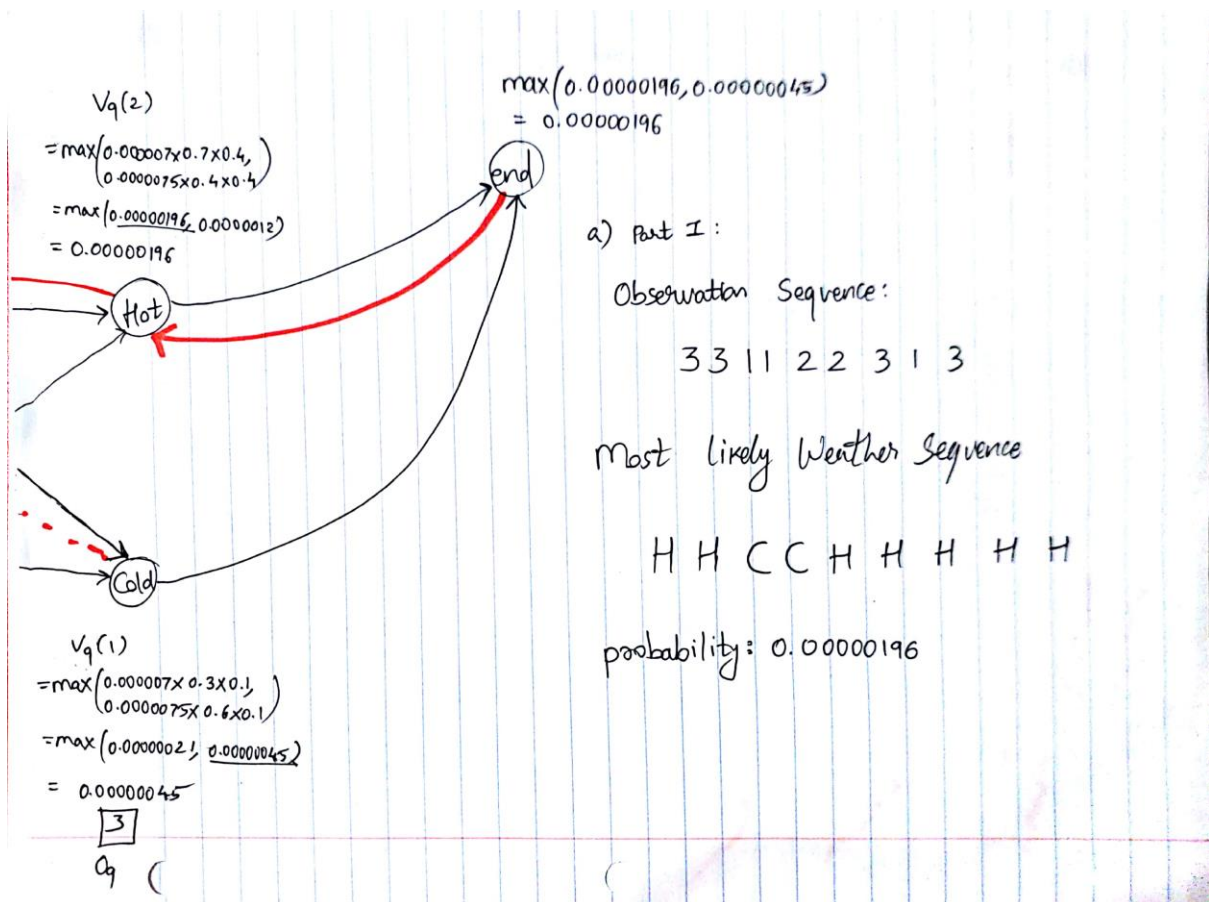 V9(2)
=max(0.000007x0.7x0.4,
0.0000075x0.4x0.4)
=max(0.00000196, 0.0000012)
= 0.00000196
Hot
Cold
V9(1)
=max(0.000007x0.3x0.1,
0.0000075x0.6x0.1)
=max(0.00000021, 0.00000045)
= 0.00000045
3
O9
max(0.00000196, 0.00000045)
= 0.00000196
end
a) Part I:
Observation Sequence:
3 3 1 1 2 2 3 1 3
Most likely Weather Sequence
H H C C H H H H H
probability: 0.00000196